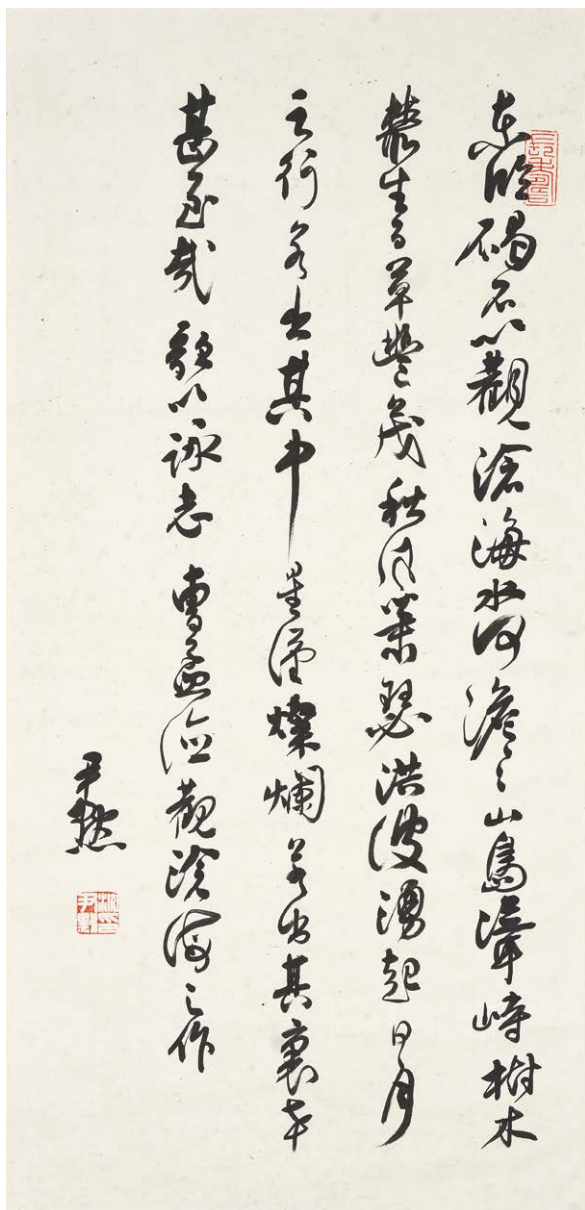 東臨碣石以觀滄海水何澹〻山島竦峙樹木
叢生百草豐茂秋風蕭瑟洪波湧起日月
之行若出其中星漢燦爛若出其裏幸
甚至哉歌以詠志 曹孟德觀滄海之作
尹默